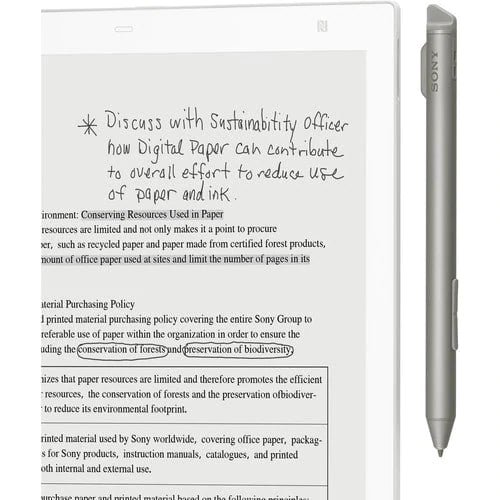 * Discuss with Sustainability Officer
how Digital Paper can contribute
to overall effort to reduce use
of paper and ink.
ironment: Conserving Resources Used in Paper
resources are limited and not only makes it a point to procure
per, such as recycled paper and paper made from certified forest products,
mount of office paper used at sites and limit the number of pages in its
aterial Purchasing Policy
d printed material purchasing policy covering the entire Sony Group to
referable use of paper within the organization in order to ensure the
uding the conservation of forests and preservation of biodiversity.
nizes that paper resources are limited and therefore promotes the efficient
r resources, the conservation of forests and the preservation ofbiodiver-
r to reduce its environmental footprint.
printed material used by Sony worldwide, covering office paper, packag-
s for Sony products, instruction manuals, catalogues, and printed
oth internal and external use.
purchase paper and printed material based on the following principles:
SONY